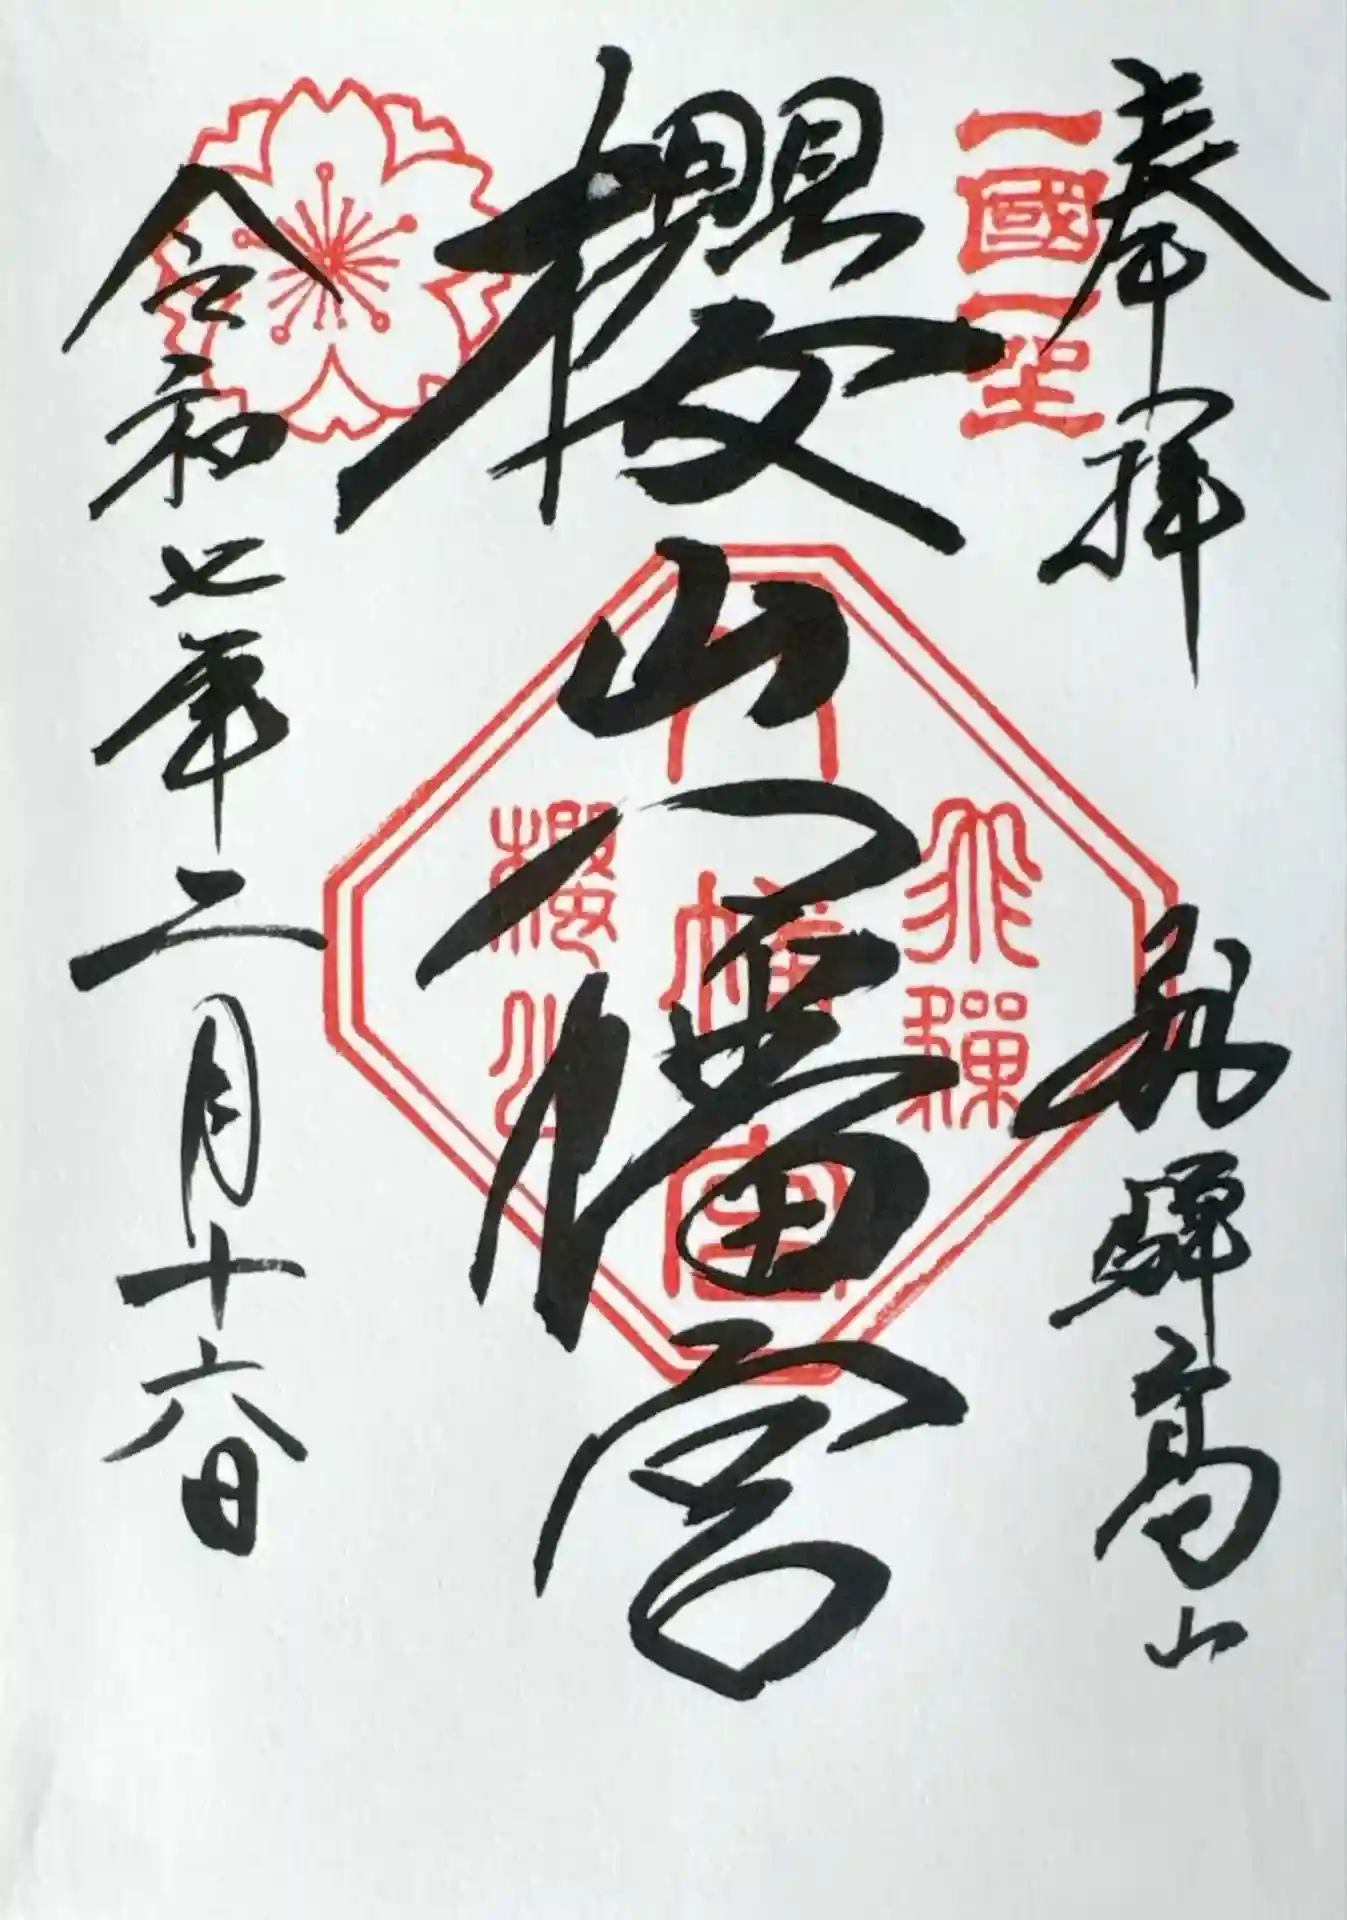 奉拝
飛驒高山
一國一社
櫻山八幡宮
飛驒
八幡宮
櫻山
令和七年二月十六日